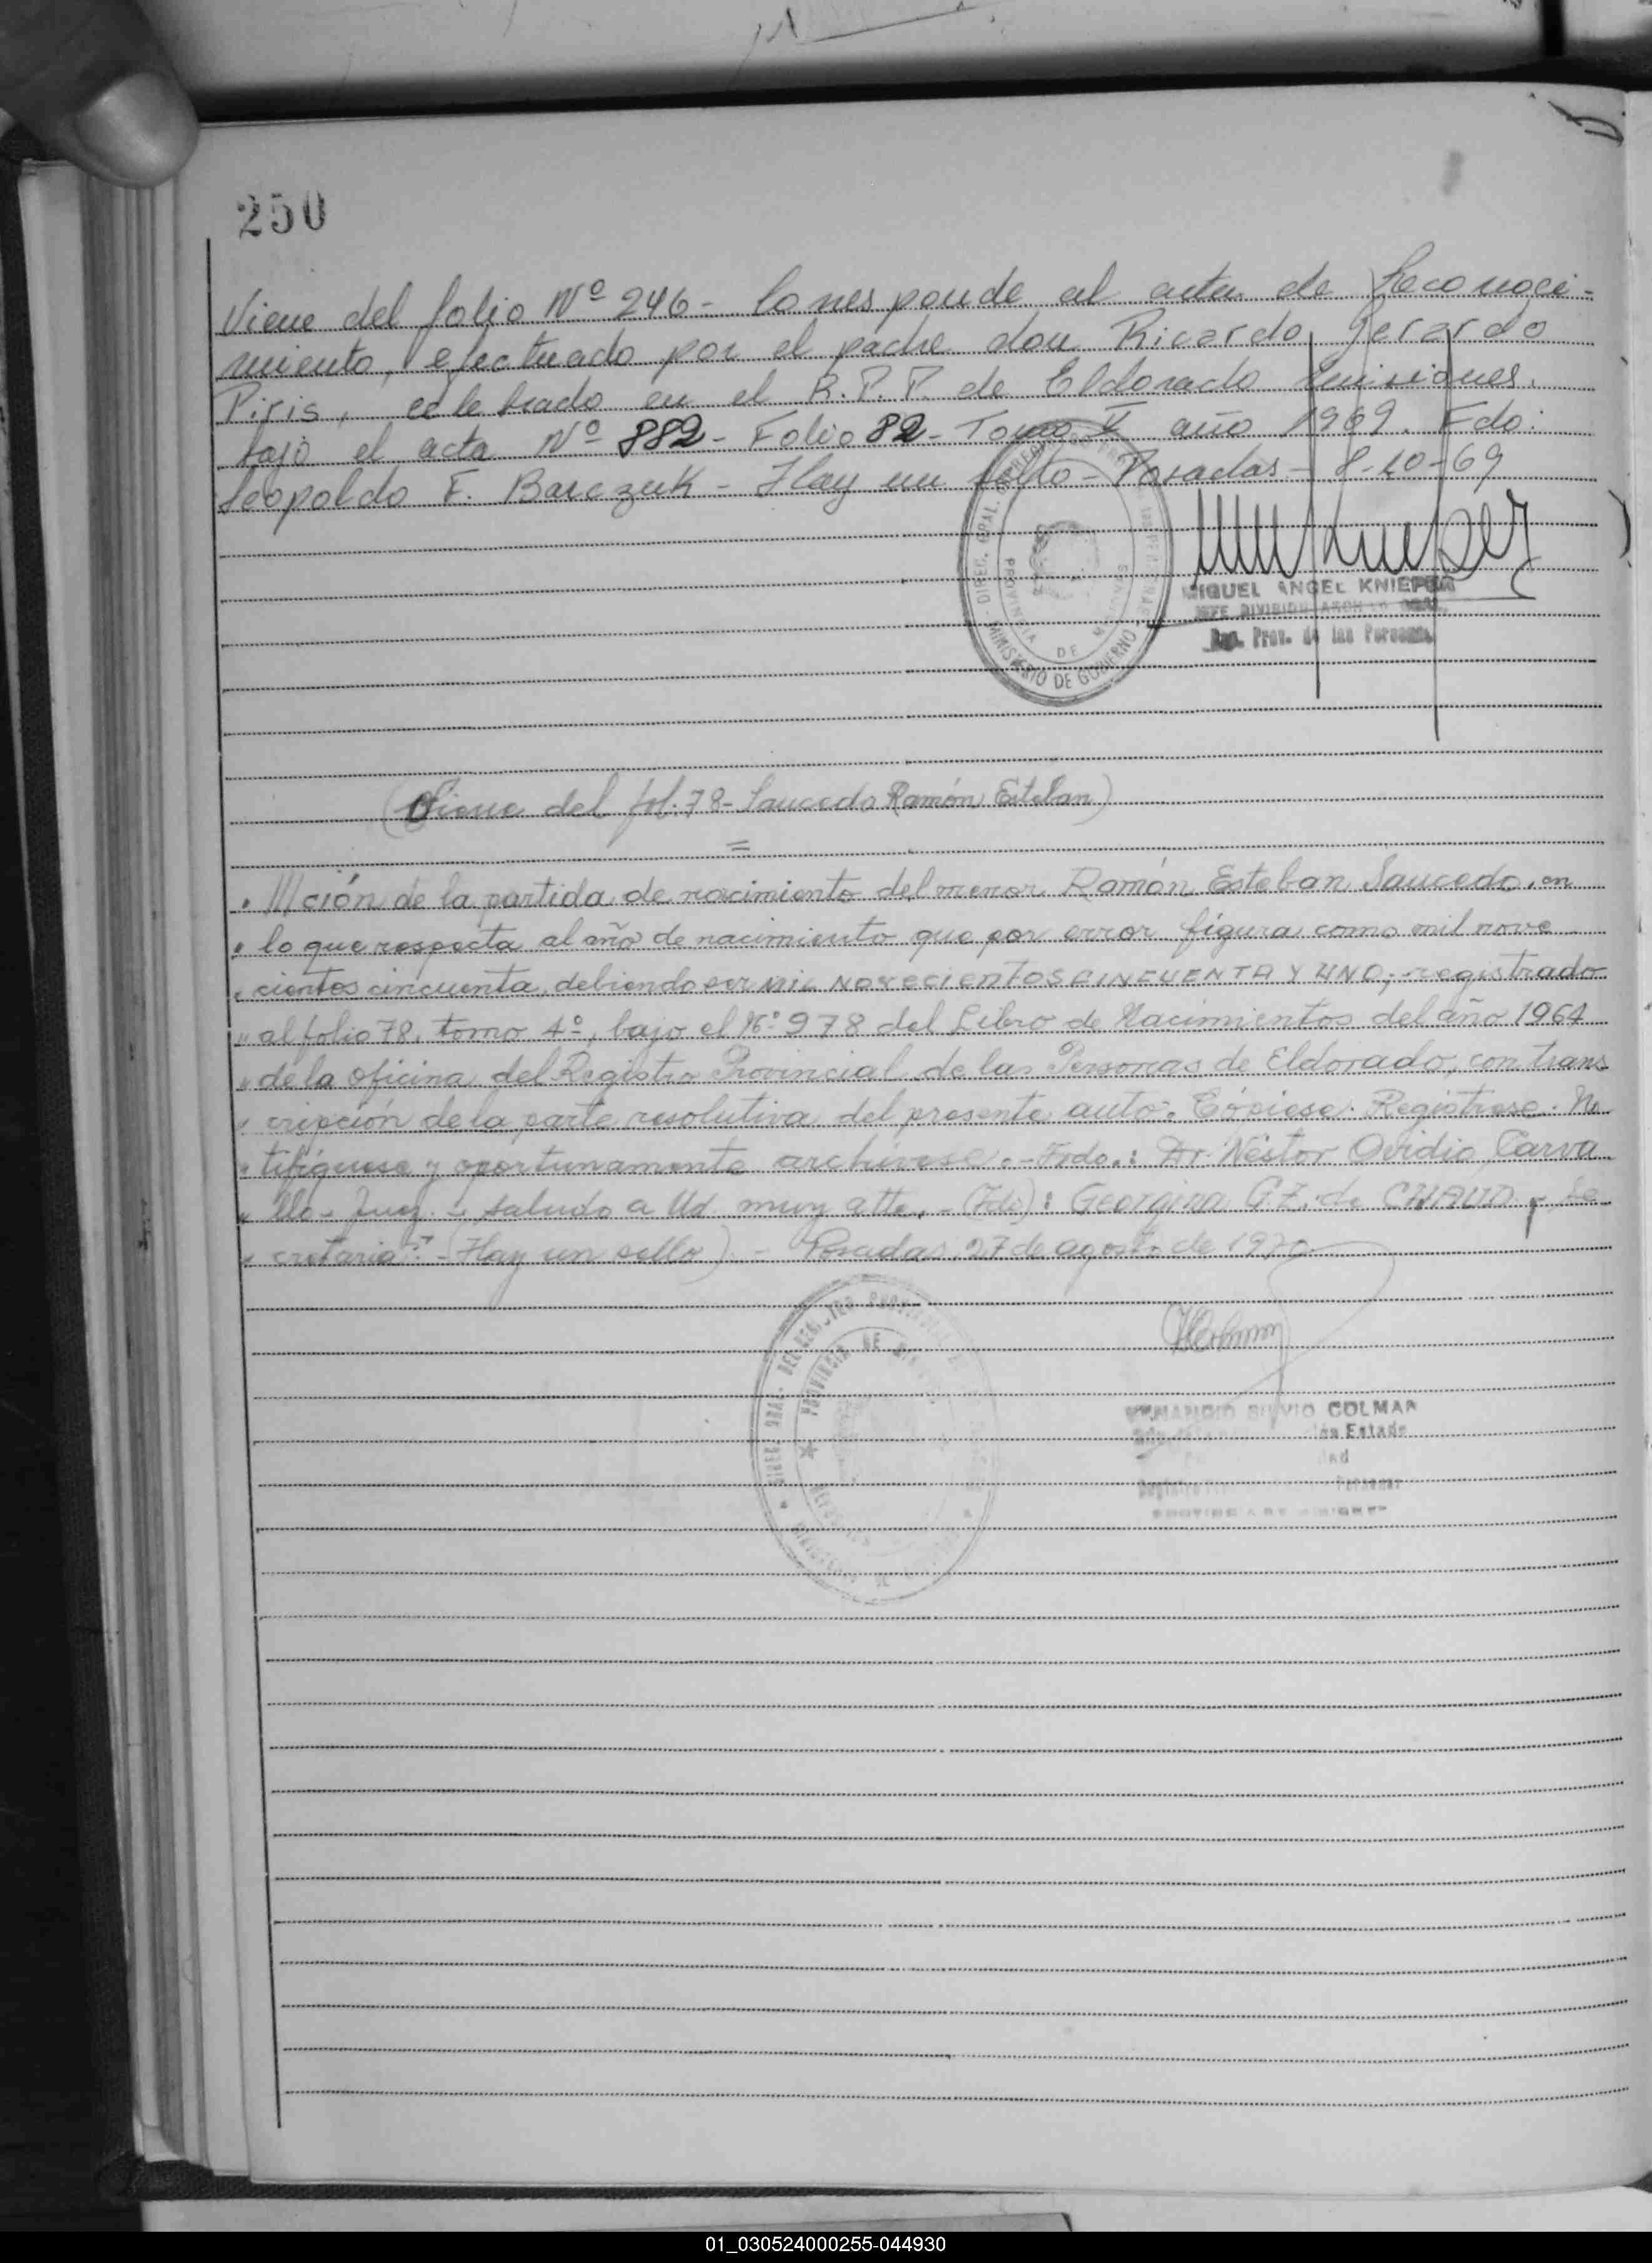 250
Viene del folio Nº 246 - Corresponde al acta de Reconoci-
miento, efectuado por el padre don Ricardo Gerardo
Piris, celebrado en el R.P.P. de Eldorado Misiones.
bajo el acta Nº 882 - Folio 82 - Tomo I año 1969. Fdo:
Leopoldo F. Barczuk - Hay un sello - Posadas - 8-10-69
DIREC. GRAL.
PROVINCIA DE MISIONES
MINISTERIO DE GOBIERNO
MIGUEL ANGEL KNIEPER
JEFE DIVISION ARCHIVO GRAL.
Reg. Prov. de las Personas
(Viene del fol. 78 - Saucedo Ramón Esteban)
=
" ///ción de la partida de nacimiento del menor Ramón Esteban Saucedo, en
" lo que respecta al año de nacimiento que por error figura como mil nove
" cientos cincuenta, debiendo ser MIL NOVECIENTOS CINCUENTA Y UNO; registrado
" al folio 78, tomo 4º, bajo el Nº 978 del Libro de Nacimientos del año 1964
" de la oficina del Registro Provincial de las Personas de Eldorado, con trans
" cripción de la parte resolutiva del presente auto. Cópiese. Regístrese. No
" tifíquese y oportunamente archívese.- Fdo.: Dr. Néstor Ovidio Carva
" llo - Juez. saludo a Ud. muy atte. - (Fdo): Georgina G.Z. de CHAUD, Se
" cretaria". - (Hay un sello) - Posadas, 27 de agosto de 1970
DIREC. GRAL. DEL REGISTRO PROVINCIAL
PROVINCIA DE
SILVIO COLMAN
Estado
Personas
01_030524000255-044930